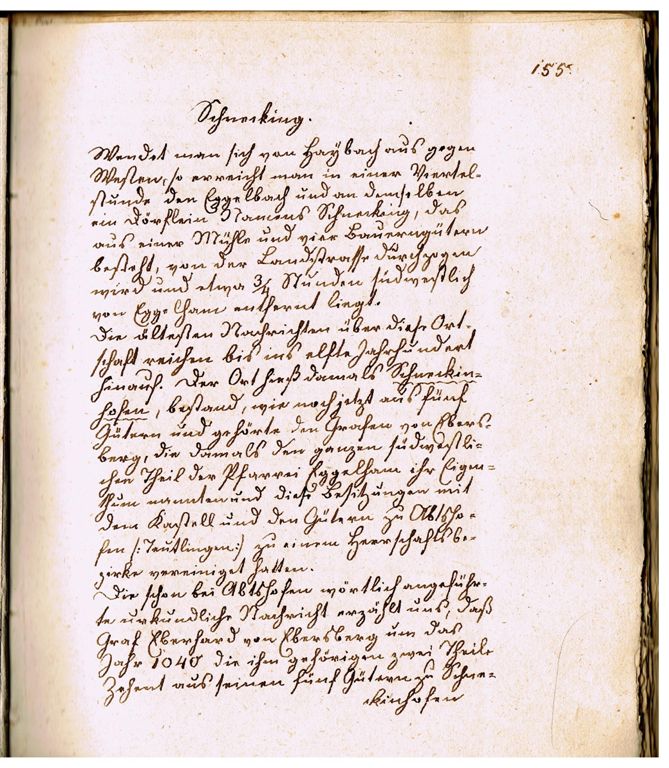 155.
Schnecking.
Wendet man sich von Haybach aus gegen
Westen, so erreicht man in einer Viertel-
stunde den Eggelbach und an demselben
ein Dörflein Namens Schnecking, das
aus einer Mühle und vier Bauerngütern
besteht, von der Landstrasse durchzogen
wird und etwa 3/4 Stunden südwestlich
von Eggelham entfernt liegt.
Die ältesten Nachrichten über diese Ort-
schaft reichen bis ins elfte Jahrhundert
hinauf. Der Ort hieß damals Schneckin-
hofen, bestand, wie noch jetzt aus fünf
Gütern und gehörte den Grafen von Ebers-
berg, die damals den ganzen südwestli-
chen Theil der Pfarrei Eggelham ihr Eigen-
thum nannten und diese Besitzungen mit
dem Kastell und den Gütern zu Abtsho-
fen /: Teutlingen :/ zu einem Herrschaftsbe-
zirke vereiniget hatten.
Die schon bei Abtshofen wörtlich angeführ-
te urkundliche Nachricht erzählt uns, daß
Graf Eberhard von Ebersberg um das
Jahr 1040 die ihm gehörigen zwei Theile
Zehent aus seinen fünf Gütern zu Schne-
ckinhofen